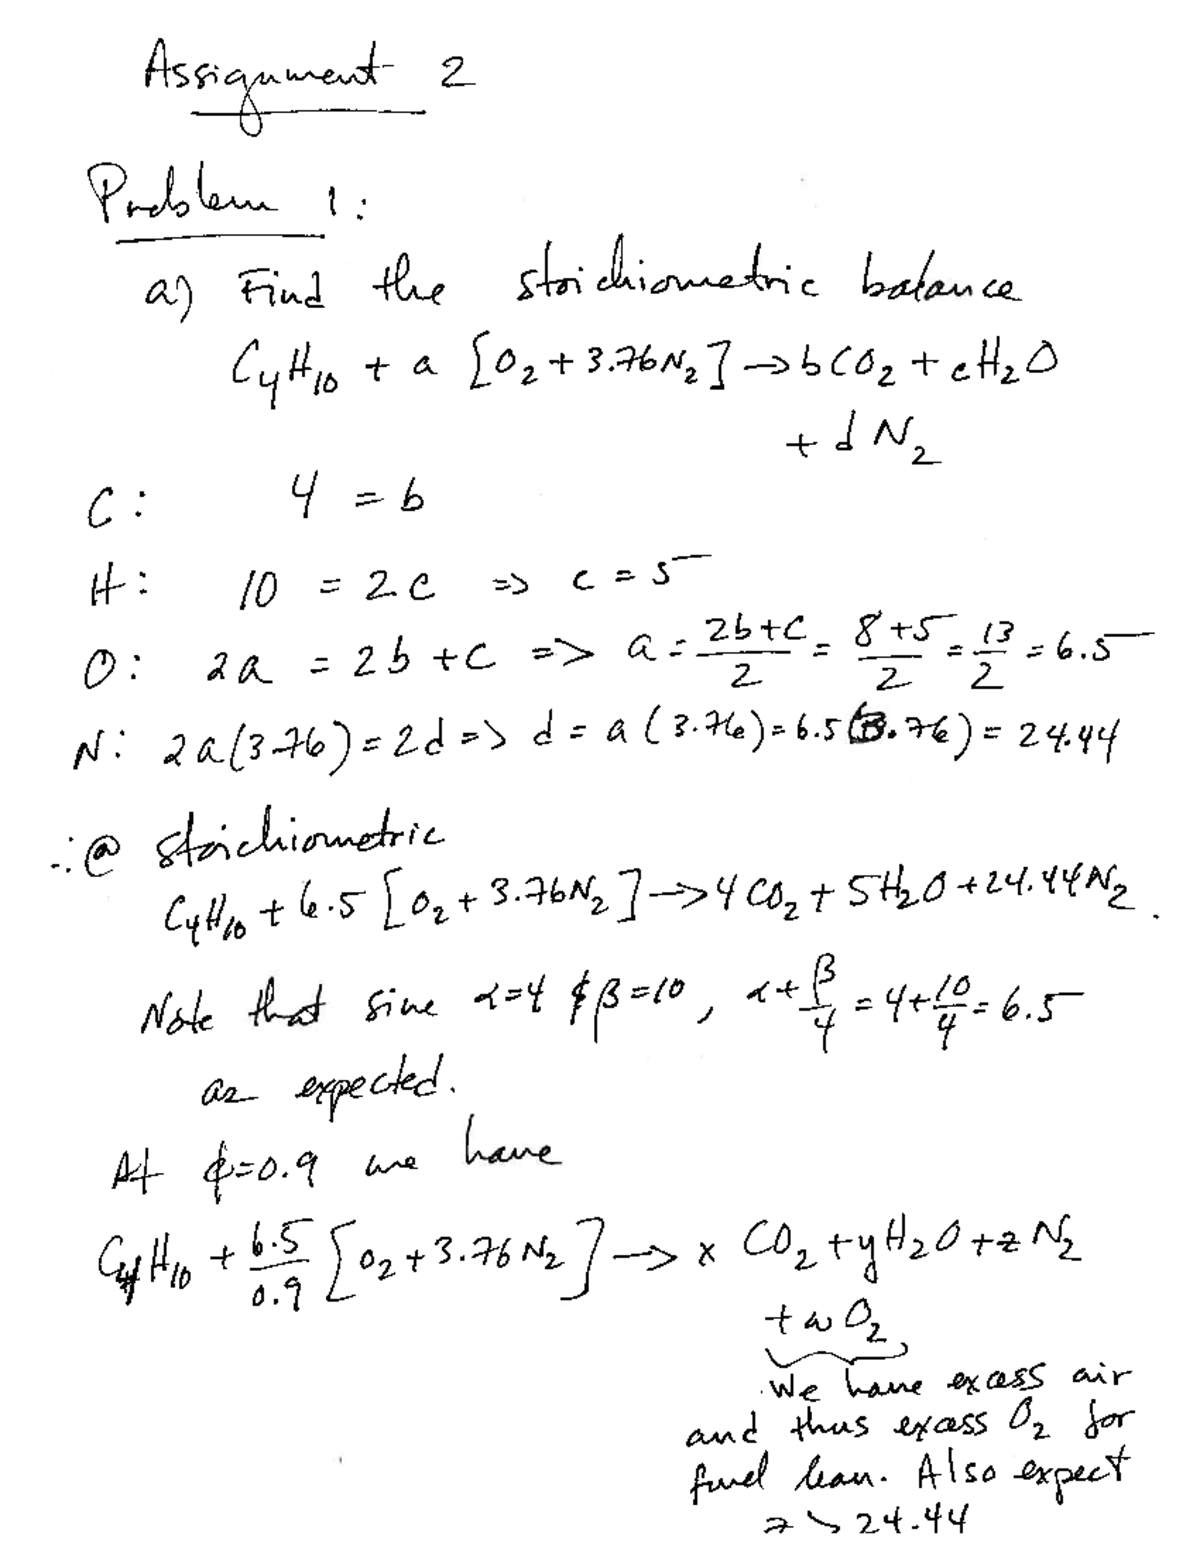 Assignment 2
Problem 1:
a) Find the stoichiometric balance
C₄H₁₀ + a [O₂ + 3.76N₂] → bCO₂ + cH₂O
+ d N₂
C: 4 = b
H: 10 = 2c => c = 5
O: 2a = 2b + c => a = (2b+c)/2 = (8+5)/2 = 13/2 = 6.5
N: 2a(3.76) = 2d => d = a(3.76) = 6.5(3.76) = 24.44
∴ @ stoichiometric
C₄H₁₀ + 6.5 [O₂ + 3.76N₂] → 4CO₂ + 5H₂O + 24.44N₂.
Note that sine α=4 & β=10, α + β/4 = 4 + 10/4 = 6.5
as expected.
At ϕ=0.9 we have
C₄H₁₀ + 6.5/0.9 [O₂ + 3.76N₂] → x CO₂ + yH₂O + zN₂
+ wO₂
We have excess air
and thus excess O₂ for
fuel lean. Also expect
z > 24.44